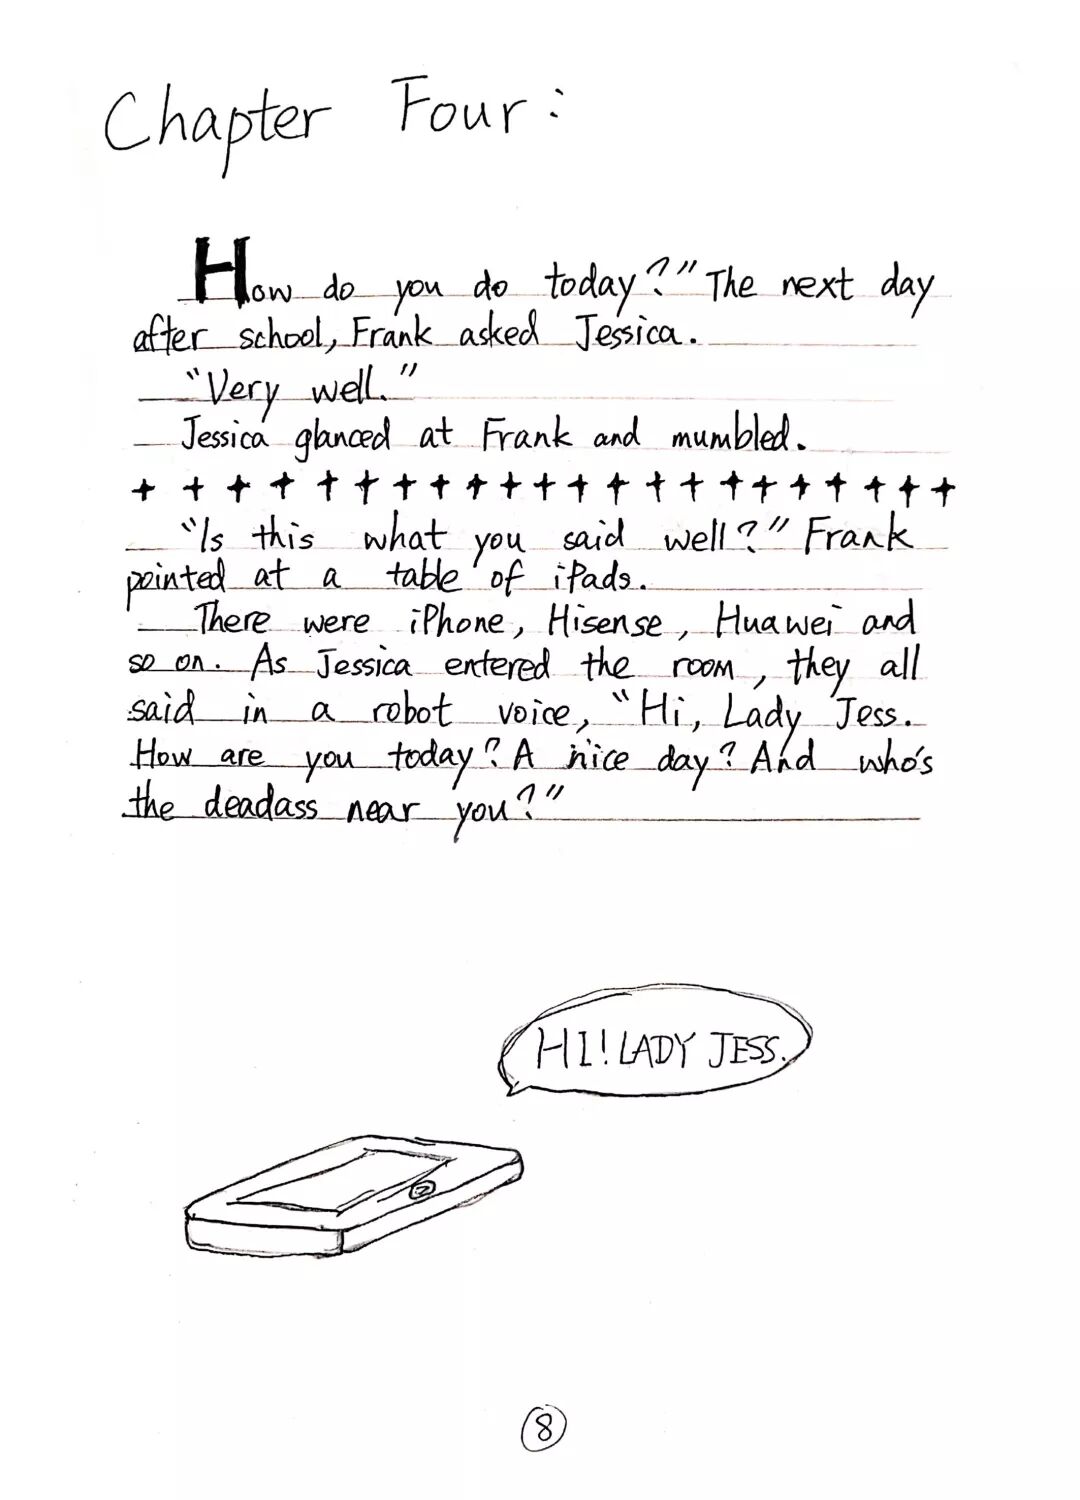 Chapter Four:
How do you do today?" The next day
after school, Frank asked Jessica.
"Very well."
Jessica glanced at Frank and mumbled.
"Is this what you said well?" Frank
pointed at a table of iPads.
There were iPhone, Hisense, Huawei and
so on. As Jessica entered the room, they all
said in a robot voice, "Hi, Lady Jess.
How are you today? A nice day? And who's
the deadass near you?"
HI! LADY JESS.
8